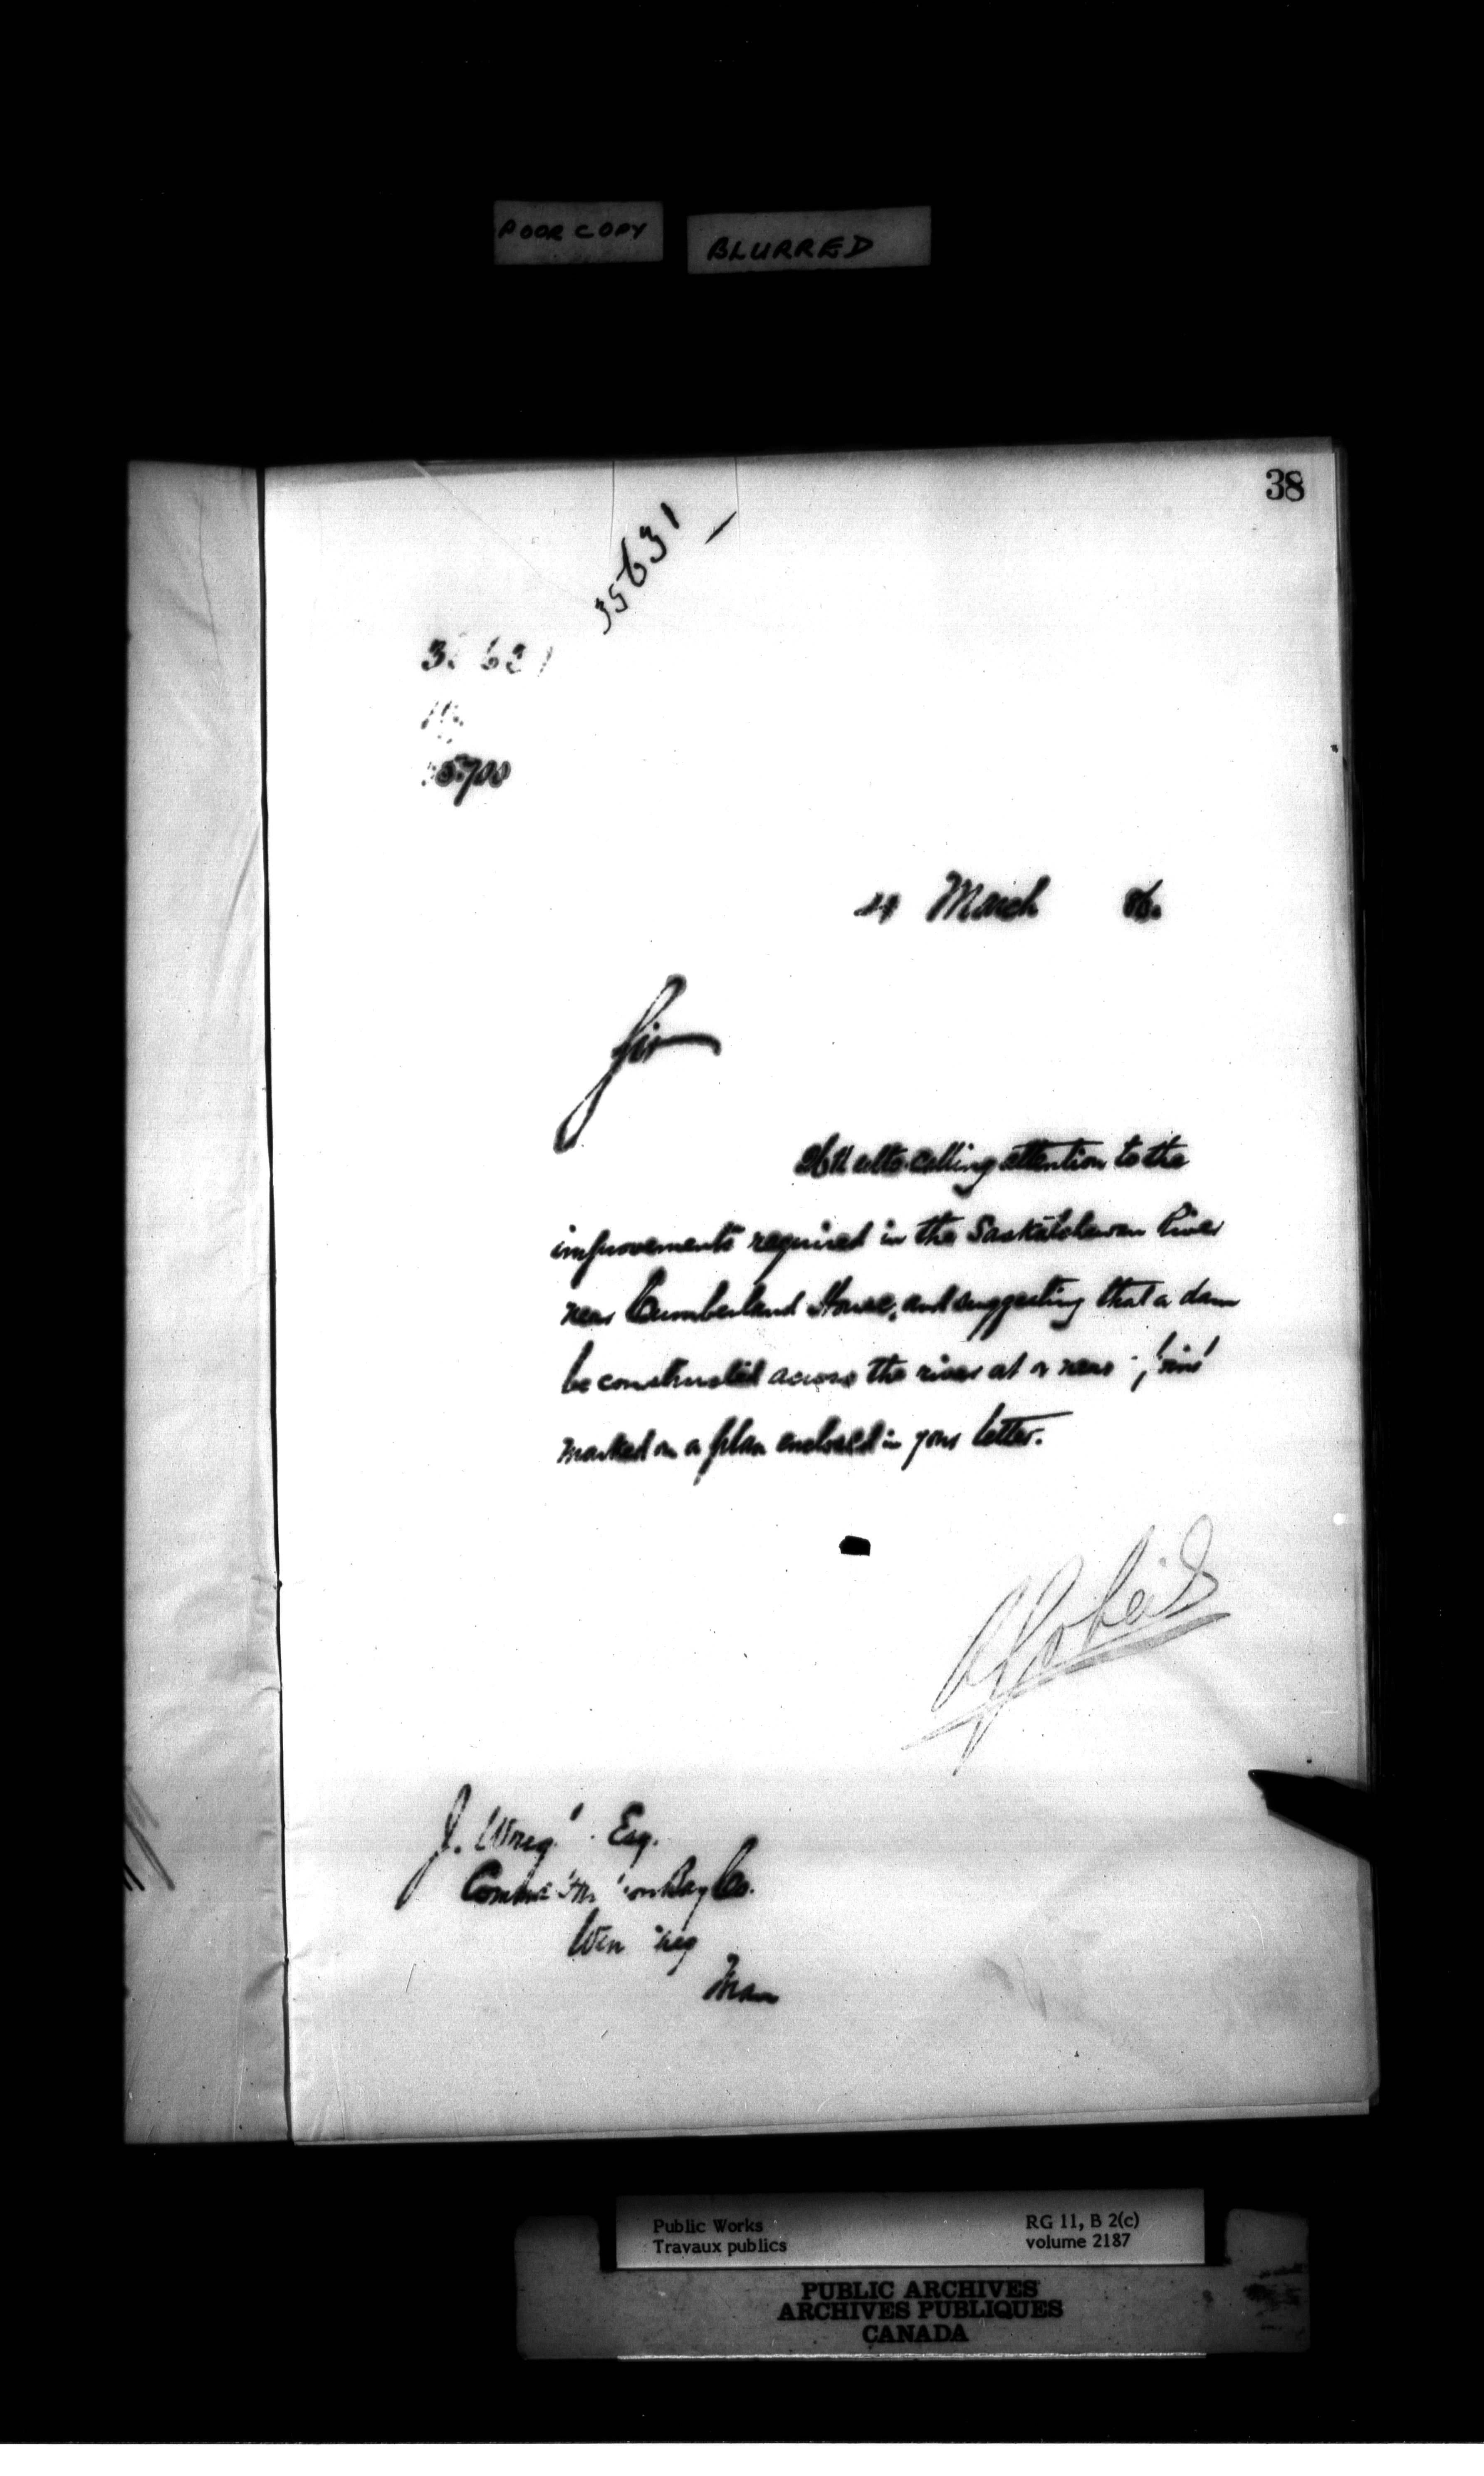 POOR COPY
BLURRED
38
35631
5700
March 86.
Sir
26th ulto. calling attention to the
improvements required in the Saskatchewan River
near Cumberland House, and suggesting that a dam
be constructed across the river at or near
marked on a plan enclosed in your letter.
J. Esq.
Bay Co.
Man
Public Works
Travaux publics
RG 11, B 2(c)
volume 2187
PUBLIC ARCHIVES
ARCHIVES PUBLIQUES
CANADA